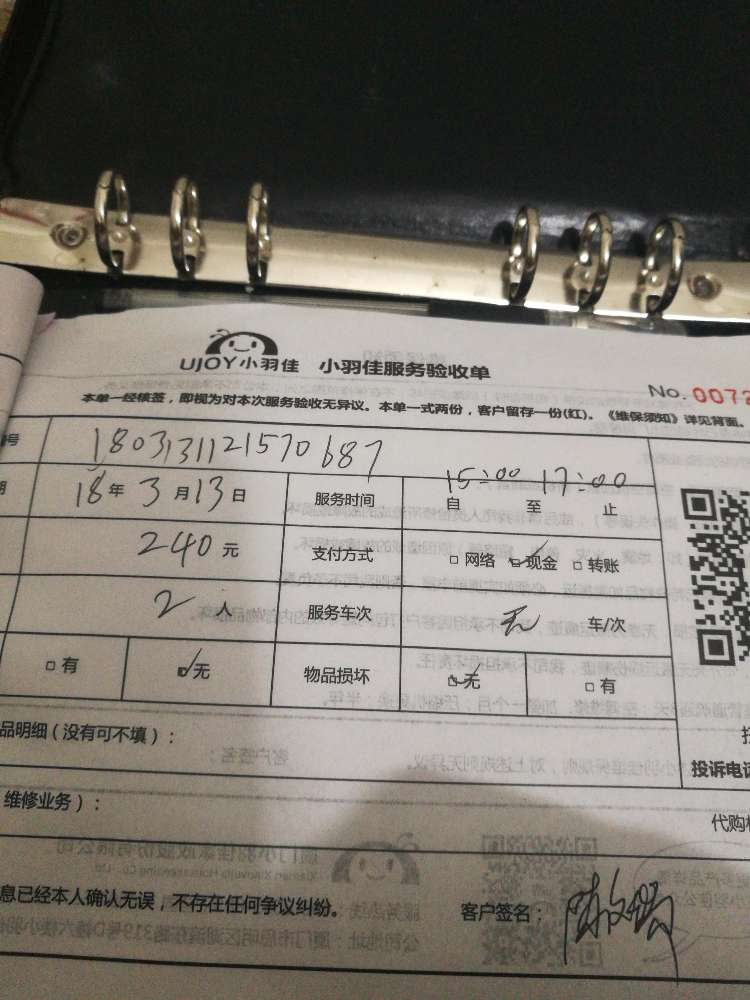 UJOY小羽佳 小羽佳服务验收单
No. 0072
本单一经核签,即视为对本次服务验收无异议。本单一式两份,客户留存一份(红)。《维保须知》详见背面。
号 1803131121570687
期 18年3月13日 服务时间 自15:00至17:00止
240元 支付方式 □网络 □现金 □转账
2人 服务车次 无 车/次
□有 □无 物品损坏 □无 □有
品明细(没有可不填):
投诉电话
维修业务):
代购
息已经本人确认无误,不存在任何争议纠纷。 客户签名: